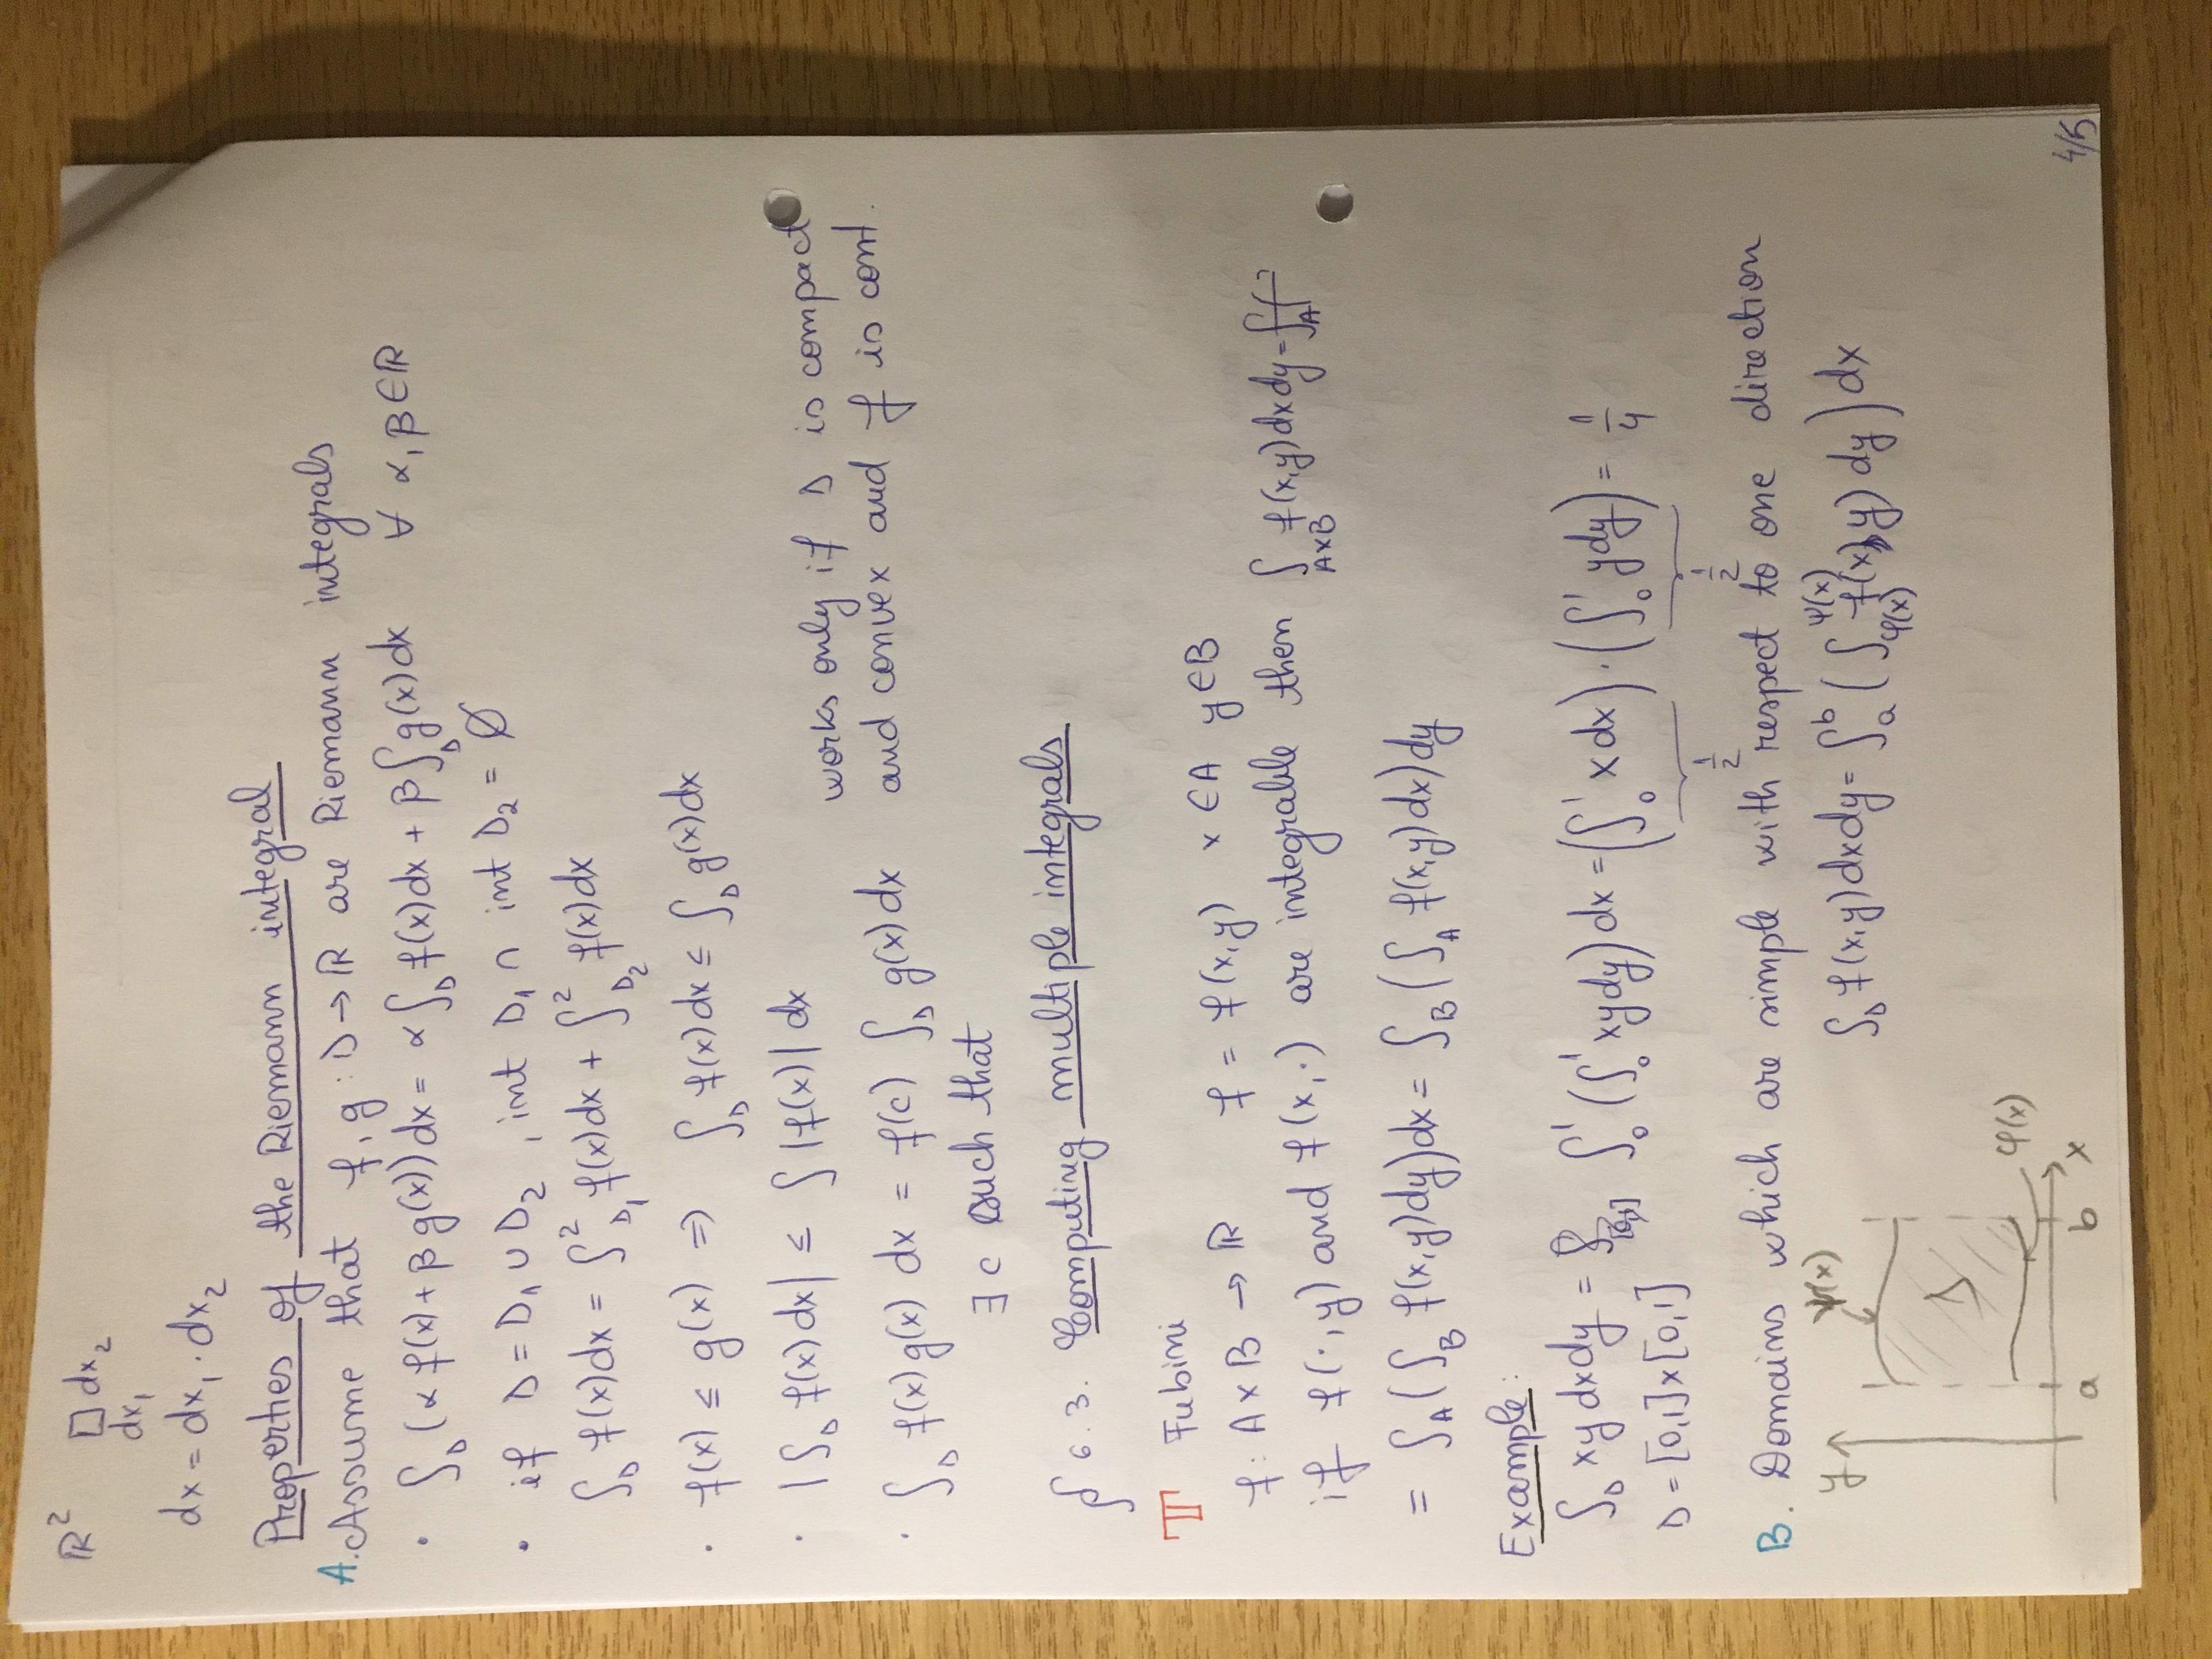 ℝ² □ dx₂
dx₁
dx = dx₁ · dx₂
Properties of the Riemann integral
A. Assume that f, g : D → ℝ are Riemann integrals
· ∫_D (α f(x) + β g(x)) dx = α ∫_D f(x) dx + β ∫_D g(x) dx ∀ α, β ∈ ℝ
· if D = D₁ ∪ D₂ , int D₁ ∩ int D₂ = ∅
∫_D f(x) dx = ∫²_D₁ f(x) dx + ∫²_D₂ f(x) dx
· f(x) ≤ g(x) ⇒ ∫_D f(x) dx ≤ ∫_D g(x) dx
· |∫_D f(x) dx| ≤ ∫ |f(x)| dx
works only if D is compact
· ∫_D f(x) g(x) dx = f(c) ∫_D g(x) dx and convex and f is cont.
∃ c such that
§ 6.3. Computing multiple integrals
T Fubini
f : A × B → ℝ f = f(x,y) x ∈ A y ∈ B
if f(·, y) and f(x, ·) are integrable then ∫_{A×B} f(x,y) dx dy =
= ∫_A (∫_B f(x,y) dy) dx = ∫_B (∫_A f(x,y) dx) dy
Example:
∫_D xy dx dy = ∫₀¹ (∫₀¹ xy dy) dx = (∫₀¹ x dx) · (∫₀¹ y dy) = 1/4
D = [0,1] × [0,1]
1/2 1/2
B. Domains which are simple with respect to one direction
y ψ(x)
∫_D f(x,y) dx dy = ∫_a^b (∫_{φ(x)}^{ψ(x)} f(x,y) dy) dx
D
φ(x)
a b x
4/5